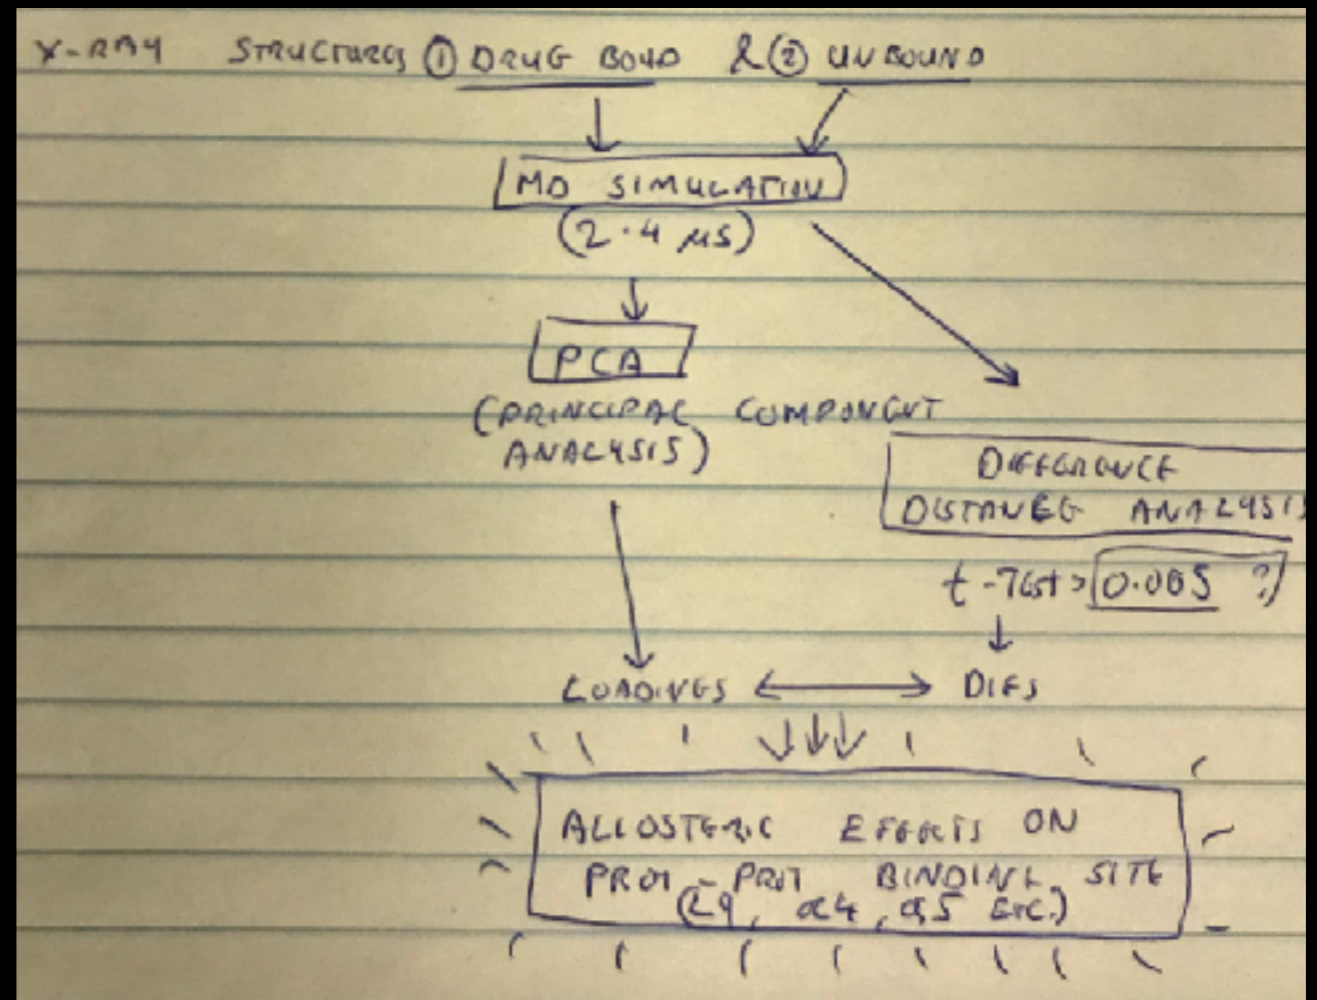 X-RAY STRUCTURES ① DRUG BOUND & ② UNBOUND
MD SIMULATION
(2.4 µs)
PCA
(PRINCIPAL COMPONENT
ANALYSIS)
DIFFERENCE
DISTANCE ANALYSIS
t-Test > 0.005 ?
LOADINGS ⟷ DIFS
ALLOSTERIC EFFECTS ON
PROT-PROT BINDING SITE
(L9, α4, α5 ETC.)